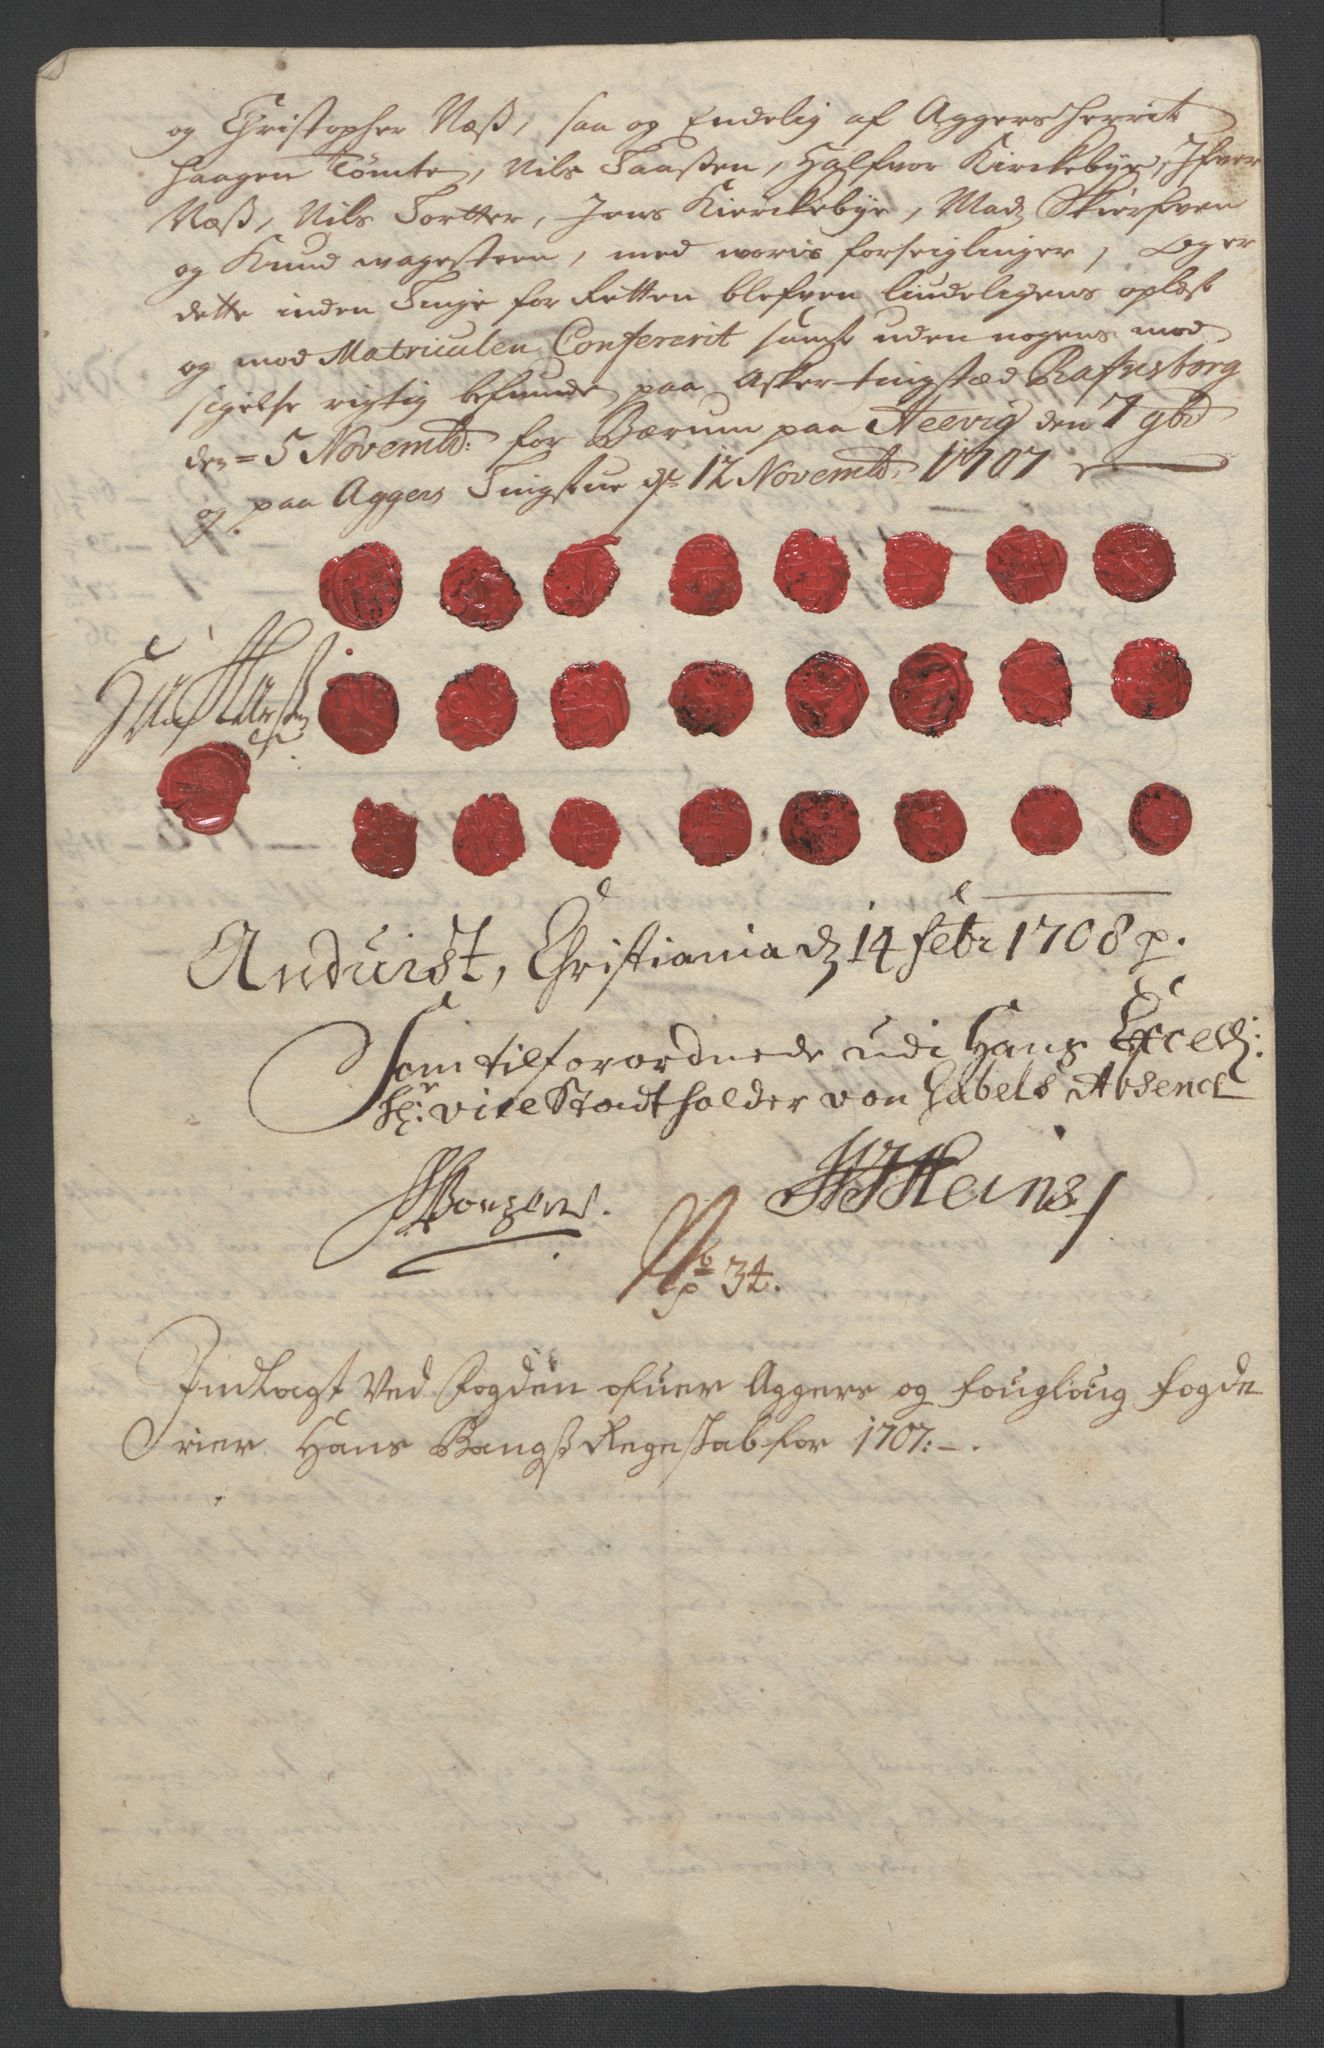 og Christopher Næss, saa og Endelig af Aggers Herrit
Haagen Tømte, Nils Taassen, Halfvor Kirckebye, Ifver
Næss, Nils Tortter, Jens Kierckebye, Madz Skierfven
og Knud wagesteen, med woris forseiglinger, Og er
dette inden Tinge for Retten blefven liudeligens oplæst
og mod Matriculen Confererit samt uden nogens mod
sigelse rigtig befunden paa Asker-tingstæd Rafnsborg
den = 5 Novembr: for Bærum paa Steevig den 7 9br
og paa Aggers Tingstue dn 12 Novembr: 1707
Anduist, Christiania dz 14 febr 1708 p.
Som tilforordnede udi Hans Excell:
Hr: vice Stadtholder von Gabels Absence
No 34.
Indlagt Ved Fogden ofuer Aggers og Fougloug Fogde
rier Hans Bangs Regenskab for 1707: -.